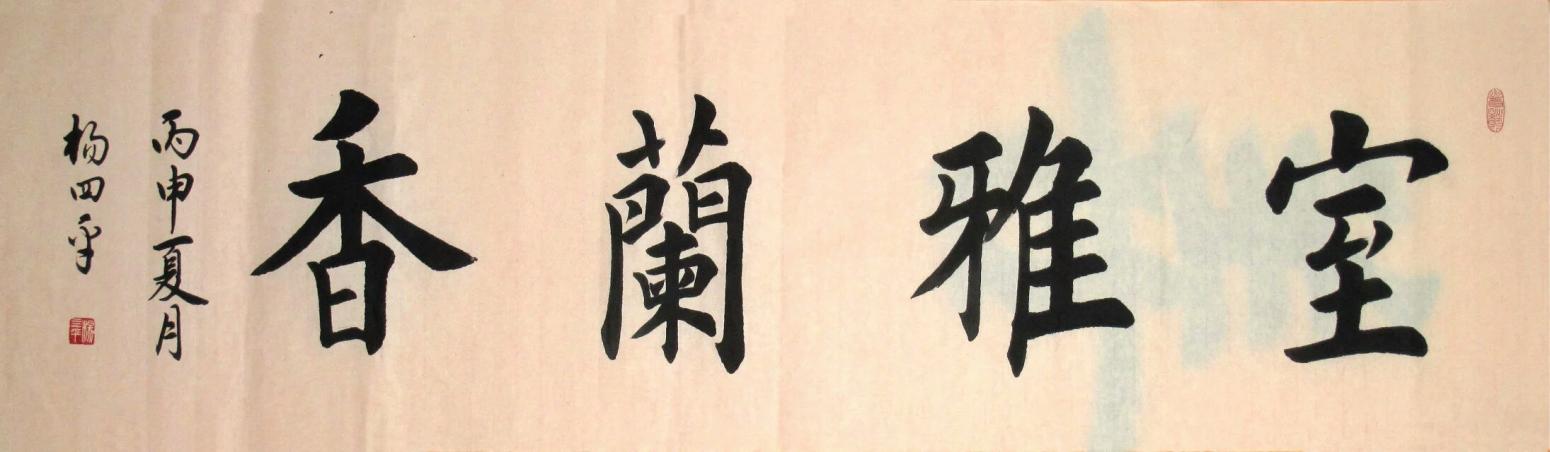 室雅蘭香
丙申夏月
楊四平